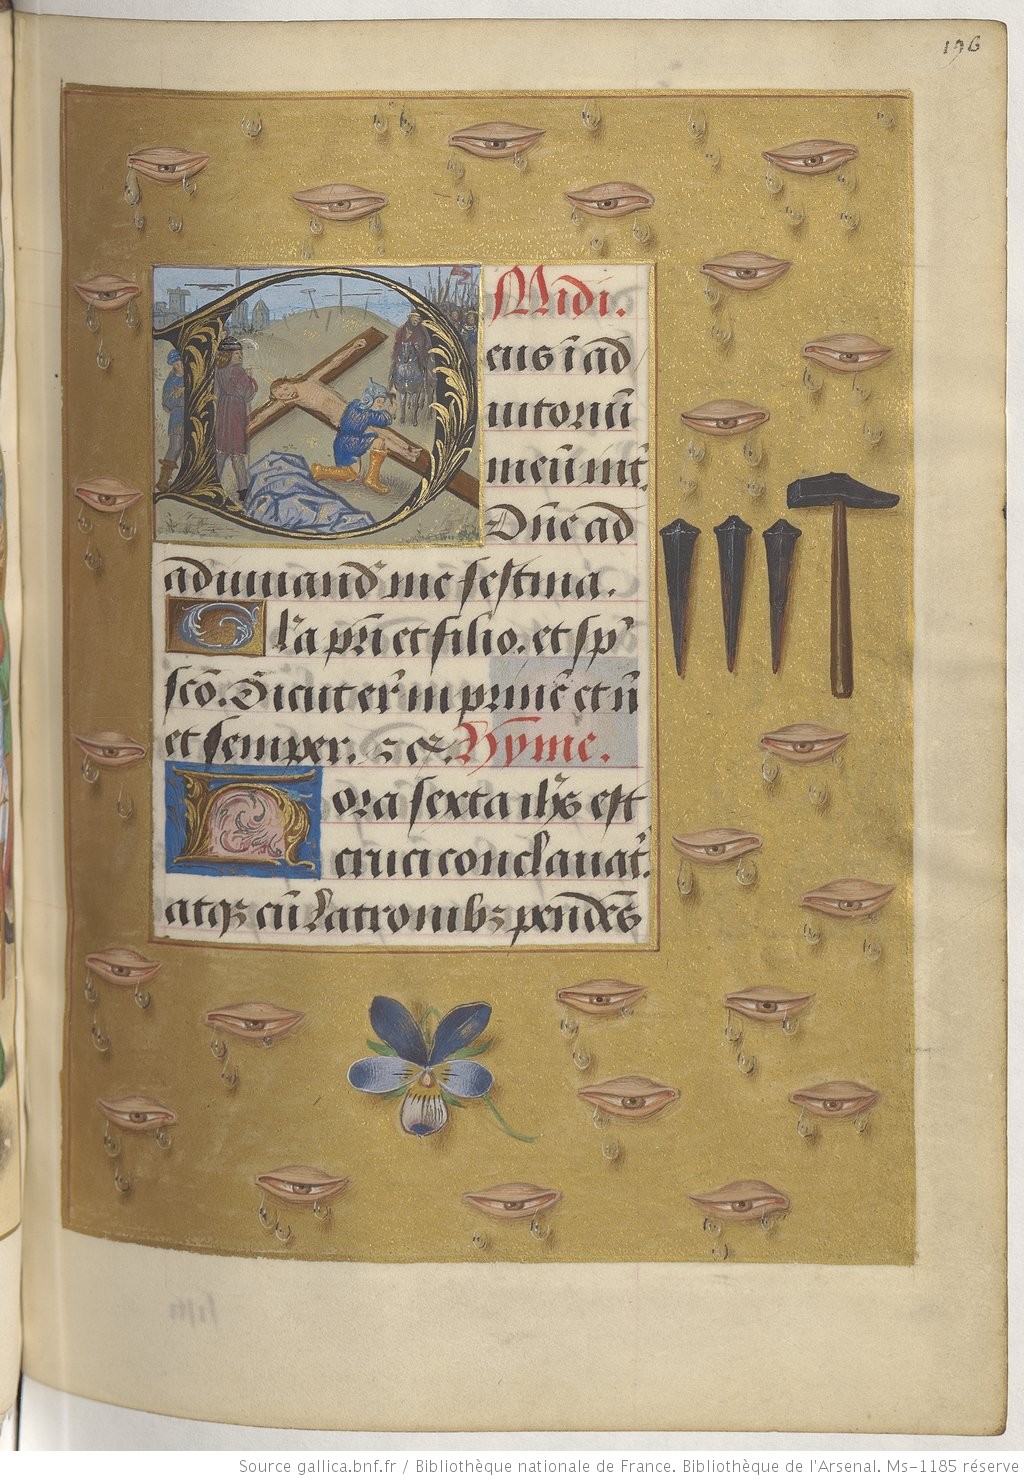 196
A Midi.
eus ī ad
iutoriū
meū int̄.
Dn̄e ad
adiuuand̄ me festina.
Gl'a pr̄i et filio. et sp̄'
sc̄o. Sicut er̄ in prīnc̄ et n̄
et semper. ⁊ c̄. Hȳme.
Hora sexta ih̄s est
cruci conclauat̄.
atqꝫ cū latronibꝫ pendēs
Source gallica.bnf.fr / Bibliothèque nationale de France. Bibliothèque de l'Arsenal. Ms-1185 réserve